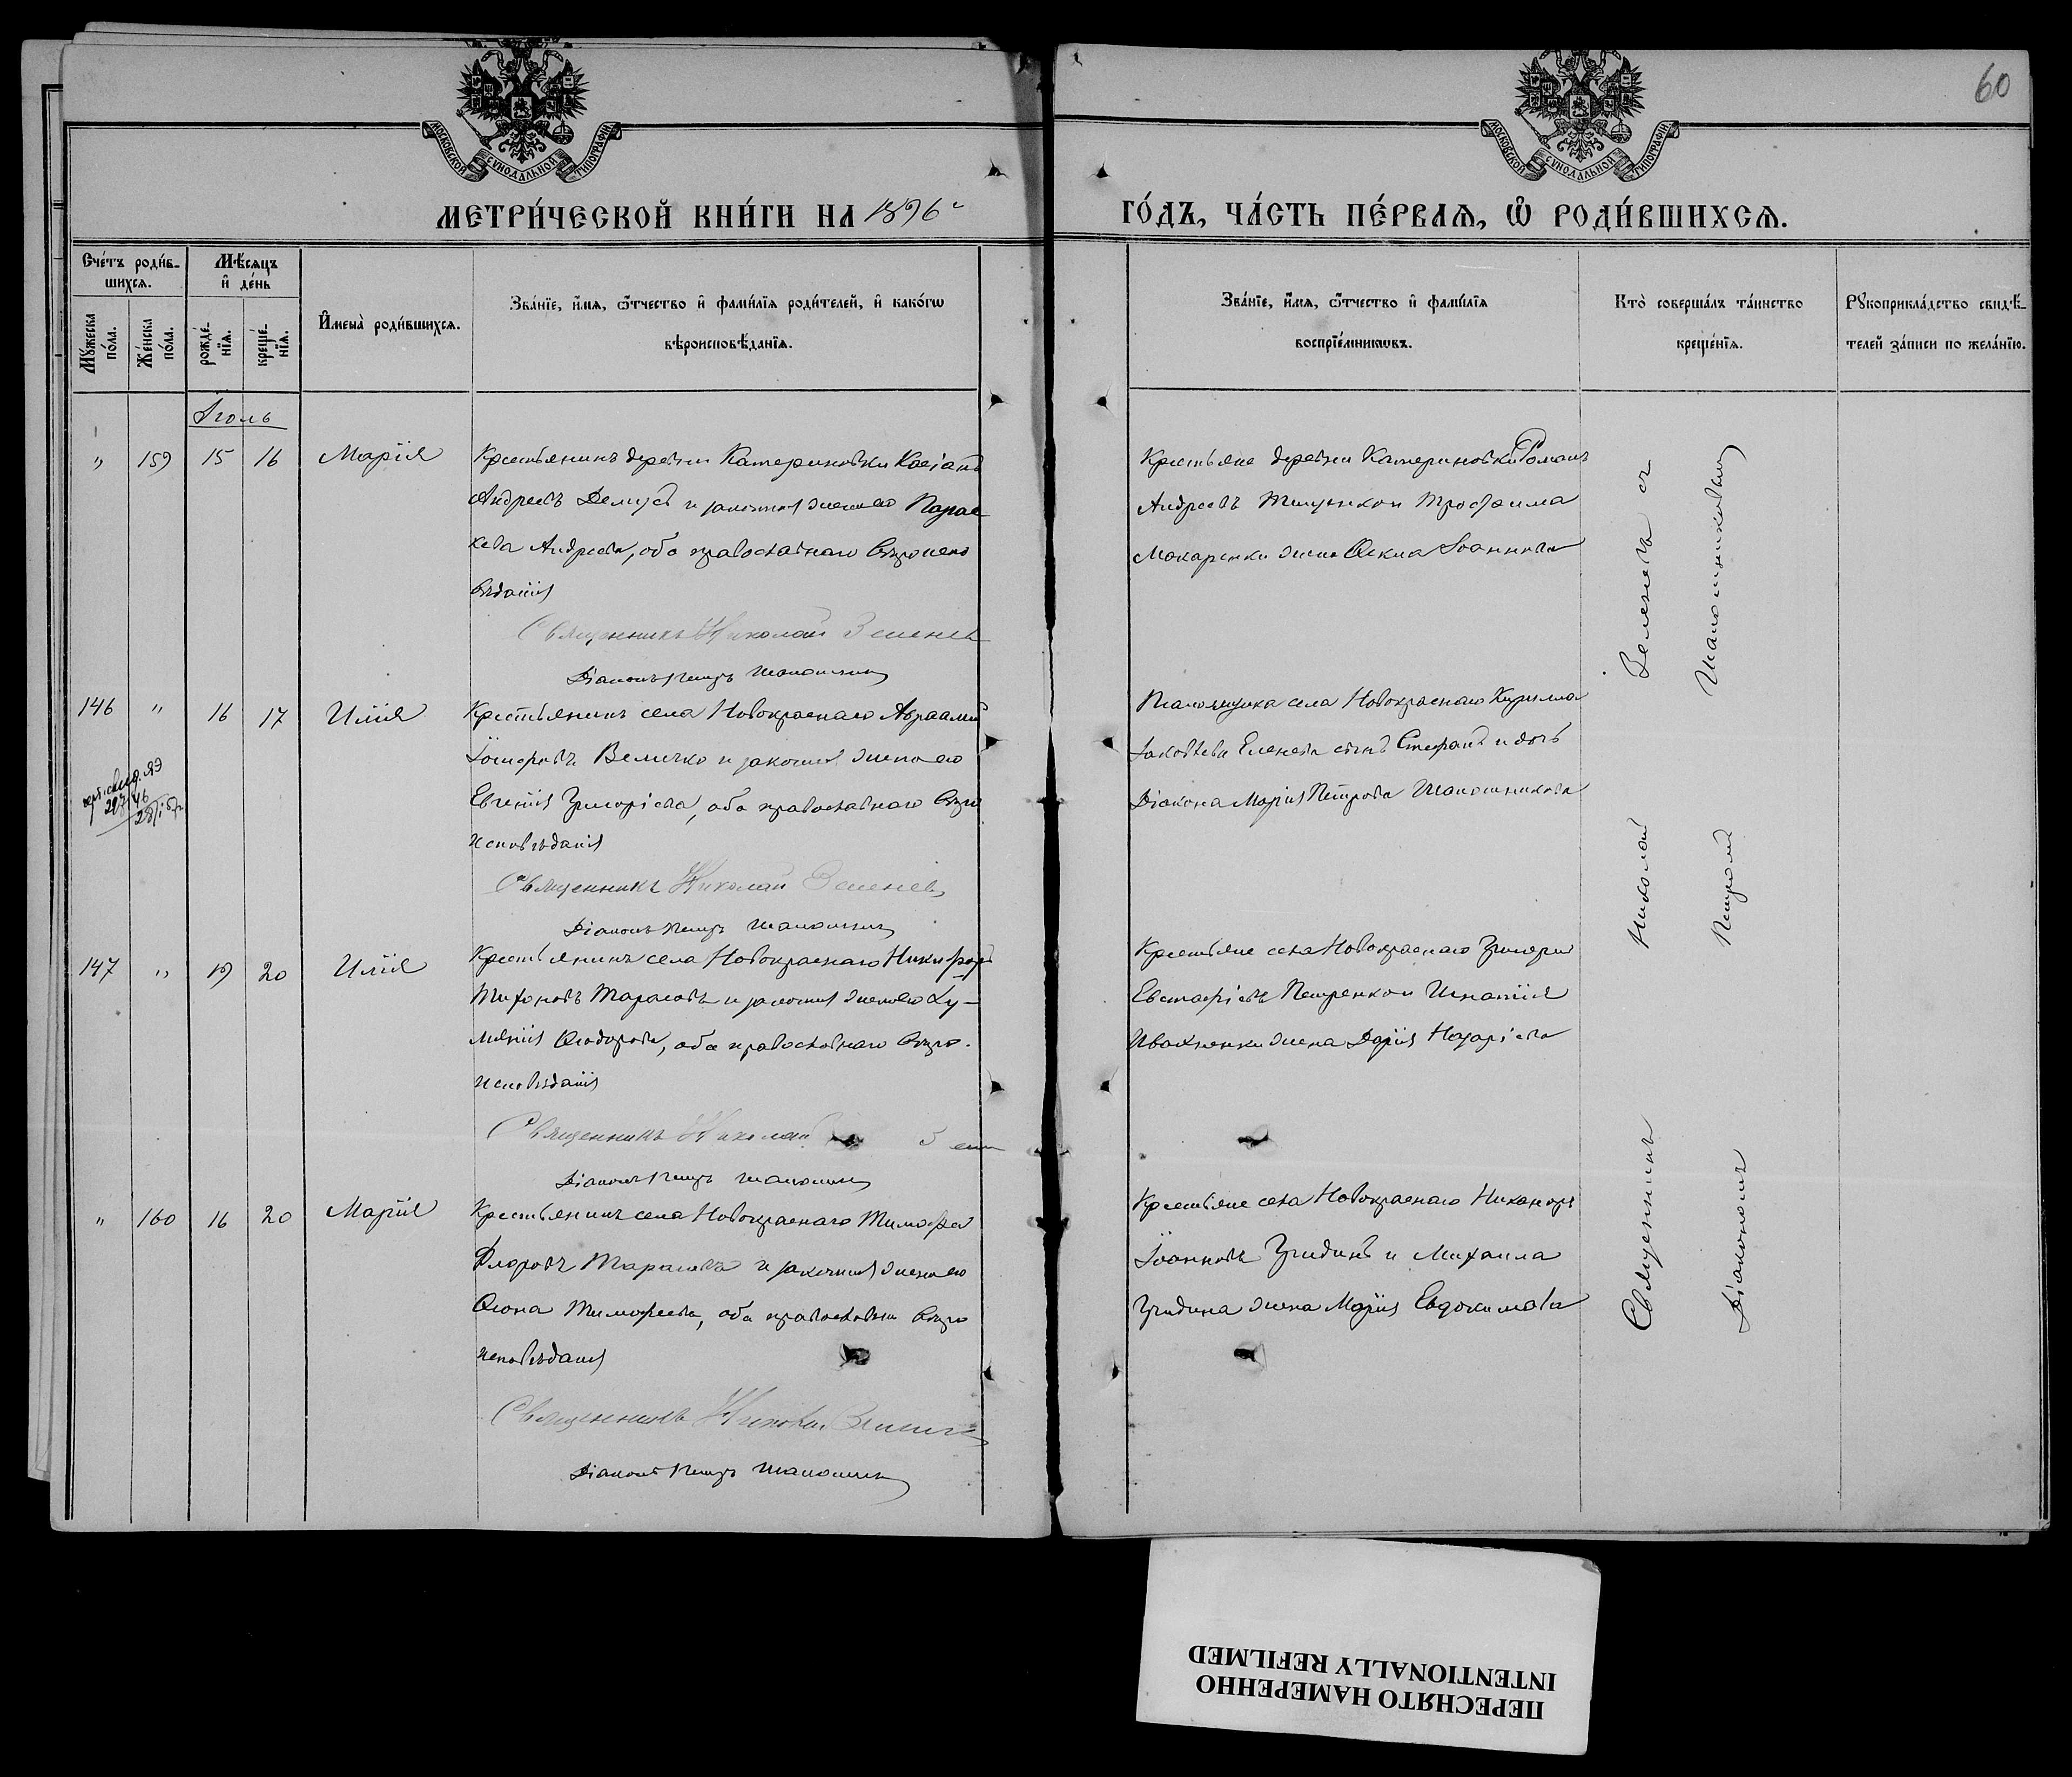 60
МОСКОВСКОЙ СѴНОДАЛЬНОЙ ТИПОГРАФІИ.
МОСКОВСКОЙ СѴНОДАЛЬНОЙ ТИПОГРАФІИ.
МЕТРИ́ЧЕСКОЙ КНИ́ГИ НА 1896 ГО́ДЪ, ЧА́СТЬ ПЕ́РВАЯ, Ѡ҆ РОДИ́ВШИХСЯ.
Сче́тъ роди́в-
шихся.
Мꙋ́жеска по́ла.
Же́нска по́ла.
Мѣ́сяцъ и҆ де́нь
рожде́-нїя.
креще́-нїя.
И҆мена̀ роди́вшихся.
Зва́нїе, и҆́мя, ѻ҆́тчество и҆ фами́лїя роди́телей, и҆ како́гѡ
вѣроисповѣ́данїя.
Зва́нїе, и҆́мя, ѻ҆́тчество и҆ фами́лїя
воспрїе́мникѡвъ.
Кто̀ соверша́лъ та́инство
креще́нїя.
Рꙋкоприкла́дство свидѣ́-
телей за́писи по жела́нїю.
Іюль
" 159 15 16 Марія
Крестьянинъ деревни Катериновки Касіанъ
Андреевъ Демусъ и законная жена его Парас
кева Андреева, оба православнаго вѣроиспо
вѣданія
Священникъ Николай Зеленев
Діаконъ Петръ Шапошник
Крестьяне деревни Катериновки Романъ
Андреевъ и Трофима
Макаренки жена Іоаннова
146 " 16 17 Илія
Крестьянинъ села Новокраснаго Авраамій
Іосифовъ Величко и законная жена его
Евгенія Григоріева, оба православнаго вѣро
исповѣданія
Священникъ Николай Зеленев
Діаконъ Петръ Шапошник
Псаломщика села Новокраснаго Кирилла
Іаковлева Еленева сынъ Стефанъ и дочь
Діакона Марія Петрова Шапошникова
147 " 19 20 Илія
Крестьянинъ села Новокраснаго Никифоръ
Тихоновъ Тарасовъ и законная жена его Іу-
ліанія Ѳеодорова, оба православнаго вѣро-
исповѣданія
Священникъ Николай
Діаконъ Петръ Шапошник
Крестьяне села Новокраснаго Григорій
Евстафіевъ Петренко и Игнатія
Ивахненки жена Дарія Назаріева
" 160 16 20 Марія
Крестьянинъ села Новокраснаго Тимофей
Флоровъ Тарасовъ и законная жена его
Тимофеева, оба православнаго вѣро
исповѣданія
Священникъ Николай Зеленев
Діаконъ Петръ Шапошник
Крестьяне села Новокраснаго Никаноръ
Іоанновъ Гридинъ и Михаила
Гридина жена Марія Евдокимова
Священникъ Николай Зеленевъ съ
Діакономъ Петромъ Шапошниковымъ
ПЕРЕСНЯТО НАМЕРЕННО
INTENTIONALLY REFILMED